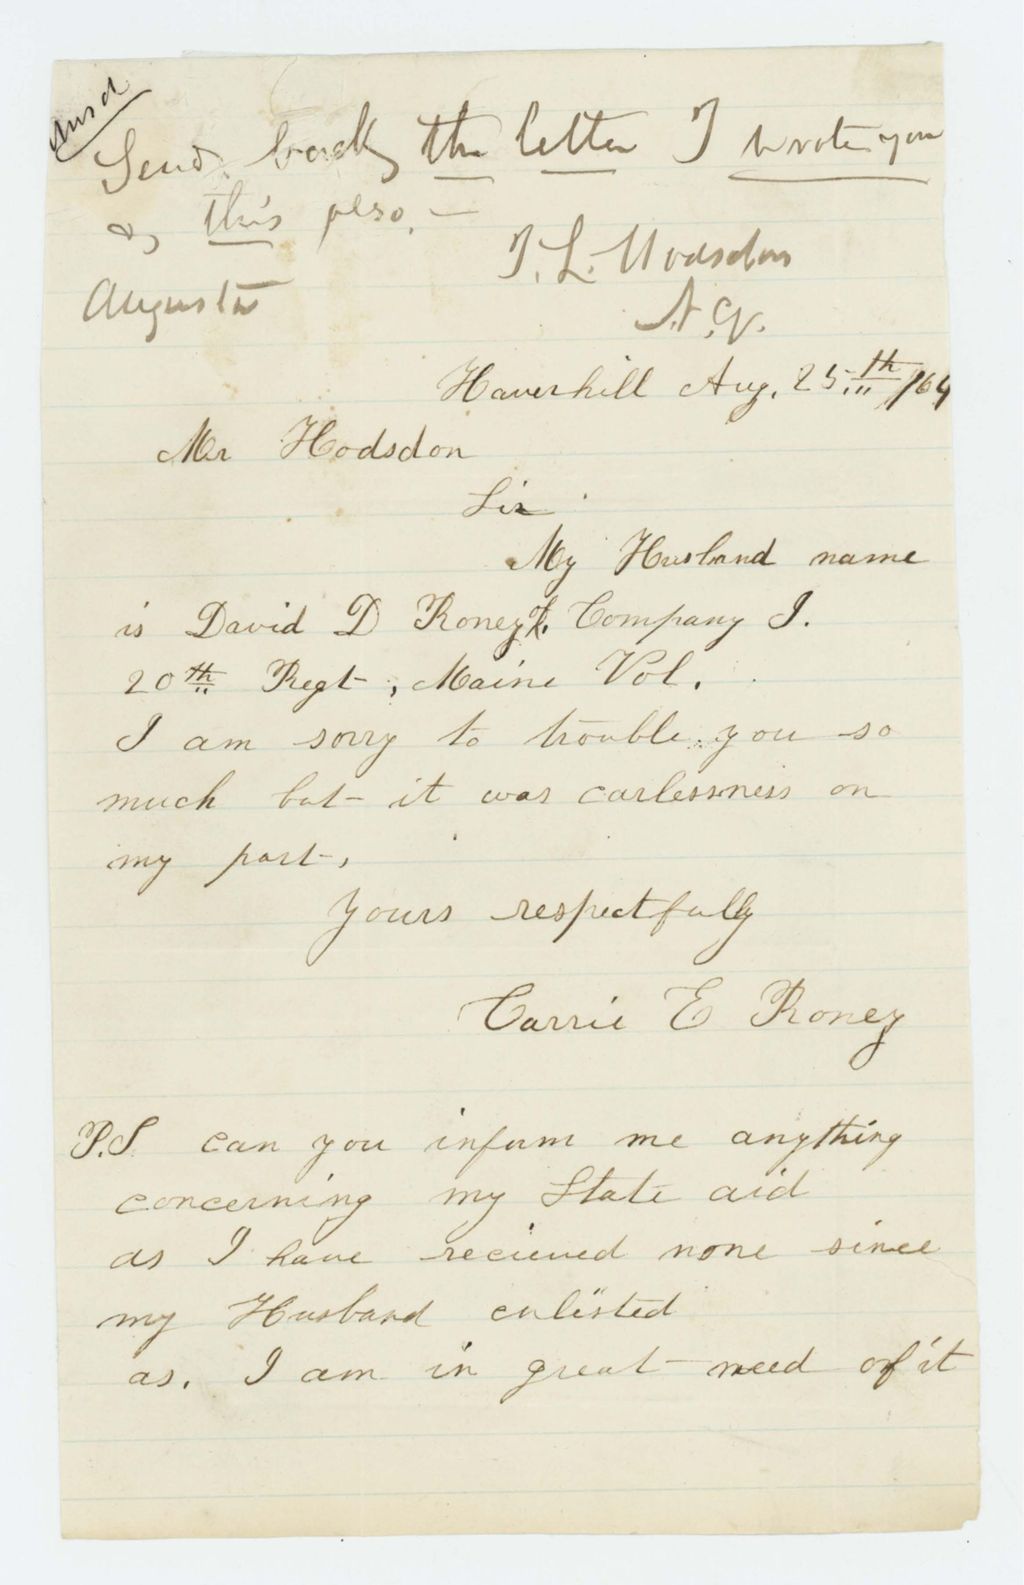 Ansd
Send back the letter I wrote you
& this also, —
J. L. Hodsdon
Augusta
A. G.
Haverhill Aug. 25th /64
Mr Hodsdon
Sir
My Husband name
is David D Roney, Company I.
20th Regt, Maine Vol.
I am sorry to trouble you so
much but it was carlessness on
my part,
Yours respectfully
Carrie E Roney
P.S can you inform me anything
concerning my State aid
as I have recieved none since
my Husband enlisted
as. I am in great need of it